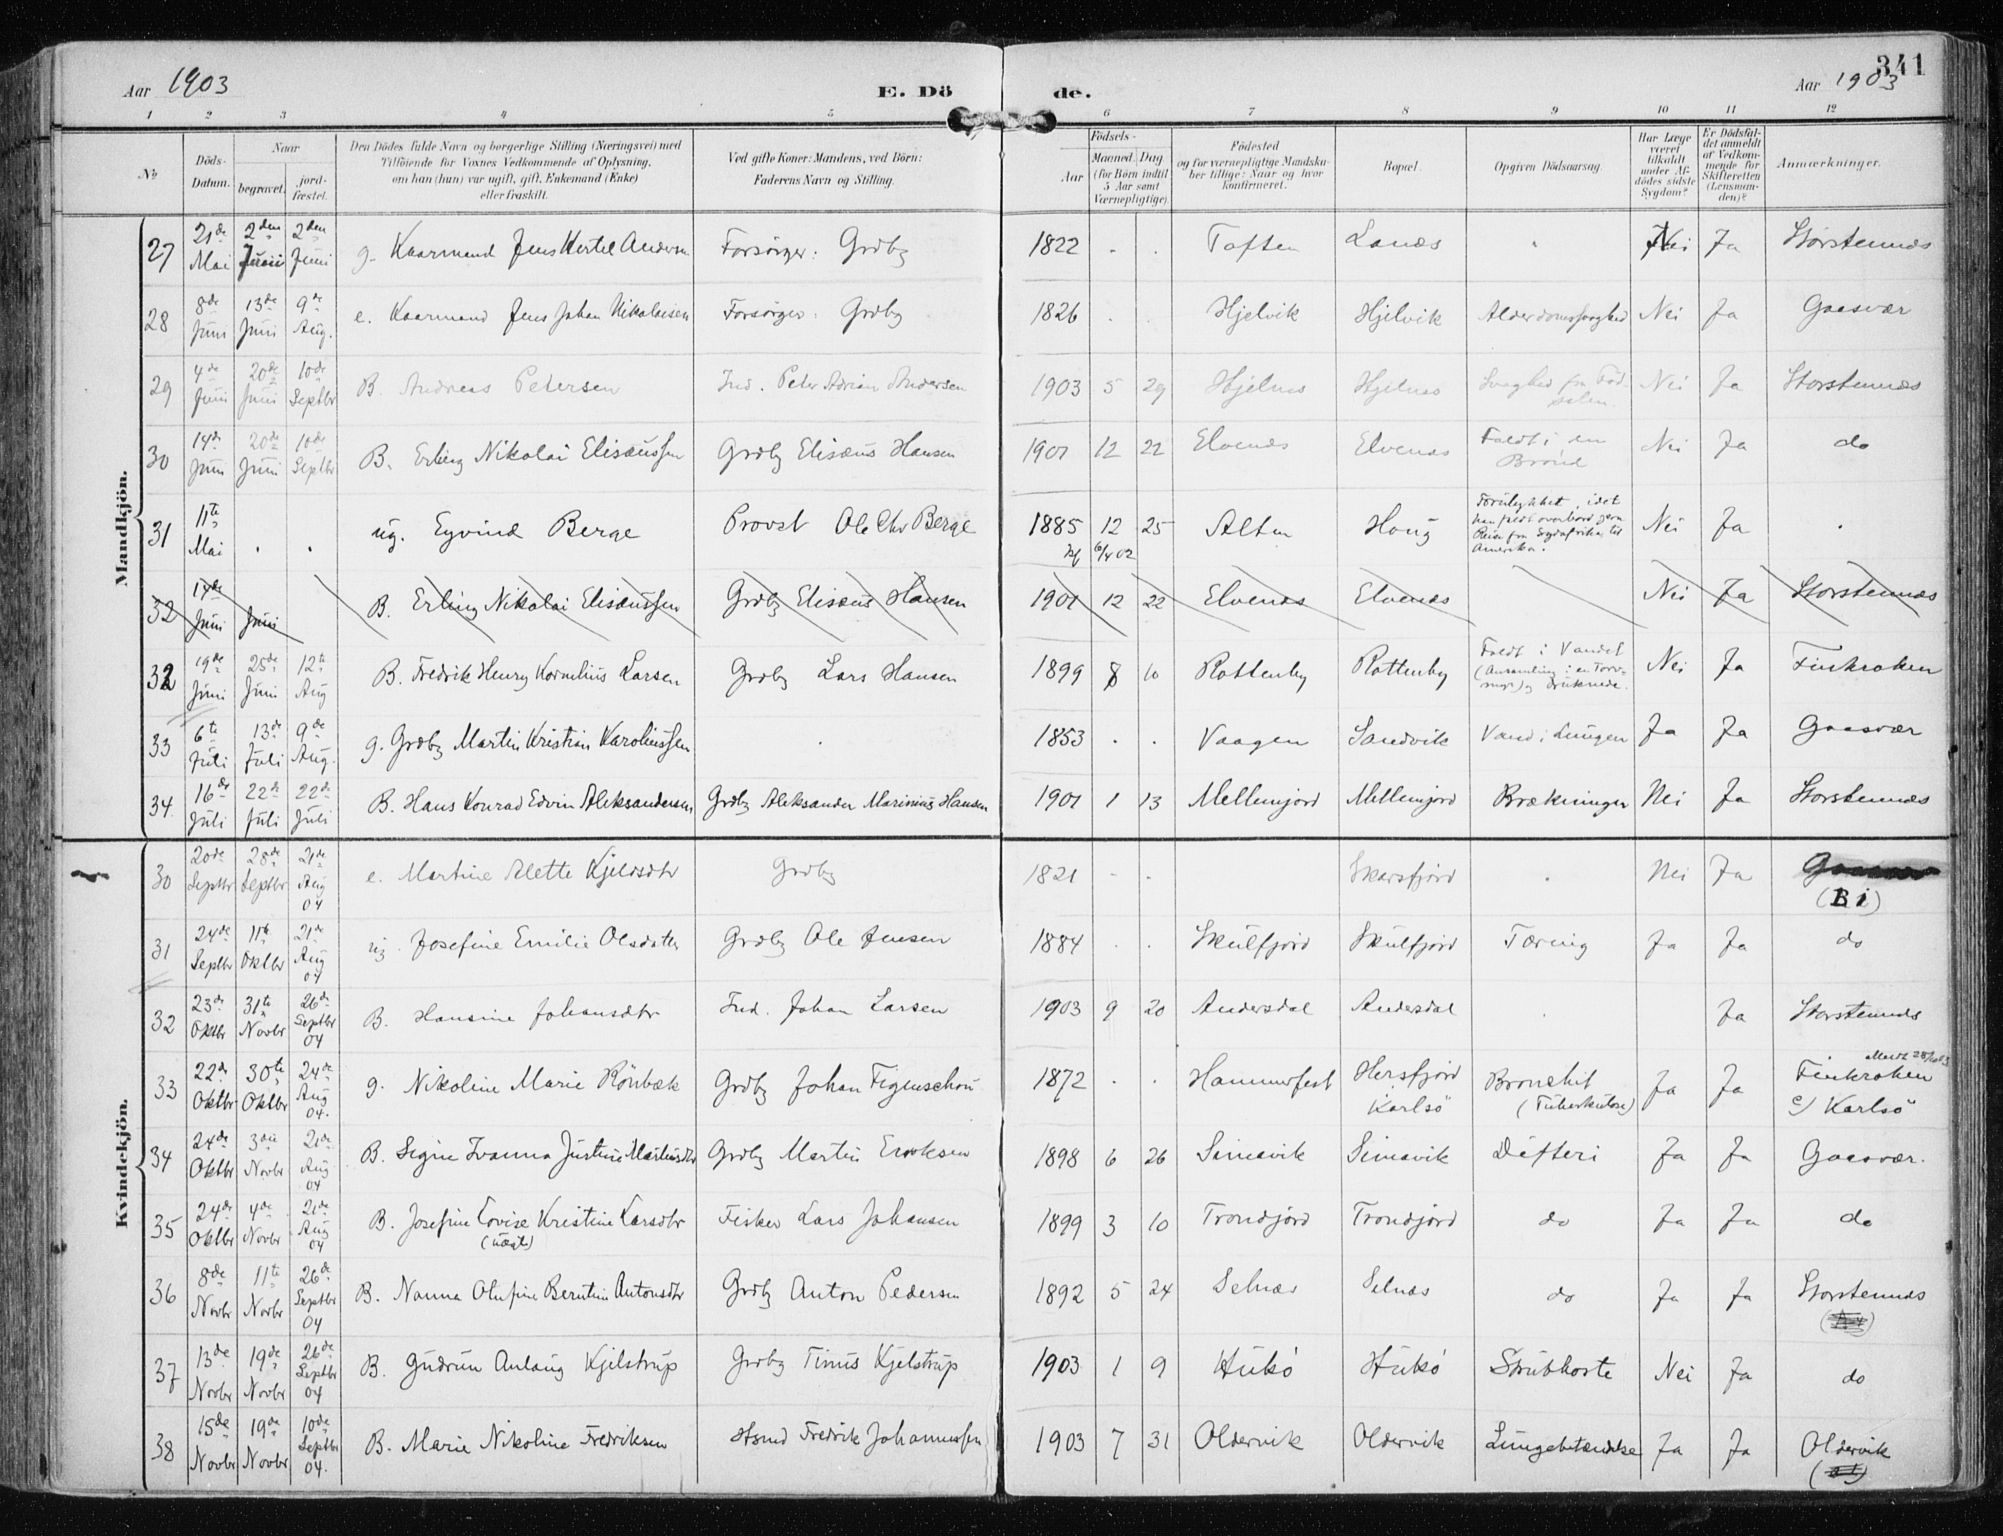 341
Aar 1903 E. Dö de. Aar 1903
1 2 3 4 5 6 7 8 9 10 11 12
No
Döds-Datum.
Naar
begravet.
jord-fæstet.
Den Dödes fulde Navn og borgerlige Stilling (Næringsvei) med
Tilföiende for Voxnes Vedkommende af Oplysning,
om han (hun) var ugift, gift, Enkemand (Enke)
eller fraskilt.
Ved gifte Koner: Mandens, ved Börn:
Faderens Navn og Stilling.
Födsels-
Aar
Maaned. Dag
(for Börn indtil
5 Aar samt
Værnepligtige).
Födested
og for værnepligtige Mandska-
ber tillige: Naar og hvor
konfirmeret.
Bopæl.
Opgiven Dödsaarsag.
Har Læge
været
tilkaldt
under Af-
dödes sidste
Sygdom?
Er Dödsfal-
det anmeldt
af Vedkom-
mende for
Skifteretten
(Lensman-
den)?
Anmærkninger.
Mandkjön.
27 21de Mai 2den Juni 2den Juni g. Kaarmand Jens Hertel Andersn Forsörger: Grdby 1822 . . Toften Lanæs . Nei Ja Storstennæs
28 8de Juni 13de Juni 9de Aug. e. Kaarmand Jens Johan Nikolaisen Forsörger: Grdby 1826 . . Hjelvik Hjelvik Alderdomssvaghed Nei Ja Gaasvær
29 4de Juni 20de Juni 10de Septbr B. Andreas Petersen Ind. Peter Adrian Andersen 1903 5 29 Hjelnæs Hjelnæs Svaghed fra Föd-
selen. Nei Ja Storstennæs
30 14de Juni 20de Juni 10de Septbr B. Erling Nikolai Elisæussen Grdby Elisæus Hansen 1901 12 22 Elvenæs Elvenæs Faldt i en
Brönd Nei Ja do
31 11te Mai . . ug. Eyvind Berge Provst Ole Chr Berge 1885 12 25 Alten Houg Forulykket, idet
han faldt overbord paa
Reise fra Sydafrika til
Amerika. Nei Ja .
kf 6/4 02
32 14de Juni Juni B. Erling Nikolai Elisæussen Grdby Elisæus Hansen 1901 12 22 Elvenæs Elvenæs Nei Ja Storstennæs
32 19de Juni 25de Juni 12te Aug B. Fredrik Henry Kornelius Larsen Grdby Lars Hansen 1899 8 10 Rottenby Rottenby Faldt i Vandet
(Ansamling i en Torv-
) og druknede. Nei Ja Finkroken
33 6te Juli 13de Juli 9de Aug. g. Grdby Martin Kristian Karoliussen . 1853 . . Vaagen Sandvik Vand i Lungen Ja Ja Gaasvær
34. 16de Juli 22de Juli 22de Juli B. Hans Konrad Edvin Aleksandersen Grdby Aleksander Marinius Hansen 1901 1 13 Mellemjord Mellemjord Brækninger Nei Ja Storstennæs
Kvindekjön.
30 20de Septbr 28de Septbr 21de Aug 04 e. Martine Alette Kjeldsdtr Grdby 1821 . . Skarsfjord . Nei Ja Gaasvær
31 24de Septbr 11te Oktbr 21de Aug 04 ug. Josefine Emilie Olsdatter Grdby Ole Jensen 1884 . . Skulfjord Skulfjord Tæring Ja Ja do
32 23de Oktbr 31te Novbr 26de Septbr 04 B. Hansine Johansdtr Ind. Johan Larsen 1903 9 20 Andersdal Andersdal . Ja Storstennæs
33 22de Oktbr 30te Oktbr 24de Aug 04. g. Nikoline Marie Rönbæk Grdby Johan Figenschou 1872 . . Hammerfest Hersfjord
Karlsö Bronchit
(Tuberkulose) Ja Ja Finkroken
c/ Karlsö
34 24de Oktbr 3die Novbr 21de Aug 04 B. Signe Ivanna Justine Martinsdtr Grdby Martin Eriksen 1898 6 26 Simavik Simavik Difteri Ja Ja Gaasvær.
35 24de Oktbr 4de Novbr 21de Aug 04 B. Josefine Lovise Kristine Larsdtr
(uægte) Fisker Lars Johansen 1899 3 10 Trondjord Trondjord do Ja Ja do
36 8de Novbr 11te Novbr 26de Septbr 04 B. Nanna Olufine Berntine Antonsdtr Grdby Anton Pedersen 1892 5 24 Selnæs Selnæs do Ja Ja Storstennæs
37 13de Novbr 19de Novbr 26de Septbr 04 B. Gudrun Anlaug Kjelstrup Grdby Tinus Kjelstrup 1903 1 9 Hukö Hukö Strubhoste Nei Ja do
38 15de Novbr 19de Novbr 10de Septbr 04. B. Marie Nikoline Fredriksen Hsmd Fredrik Johannessen 1903 7 31 Oldervik Oldervik Lungebetændelse Ja Ja Oldervik